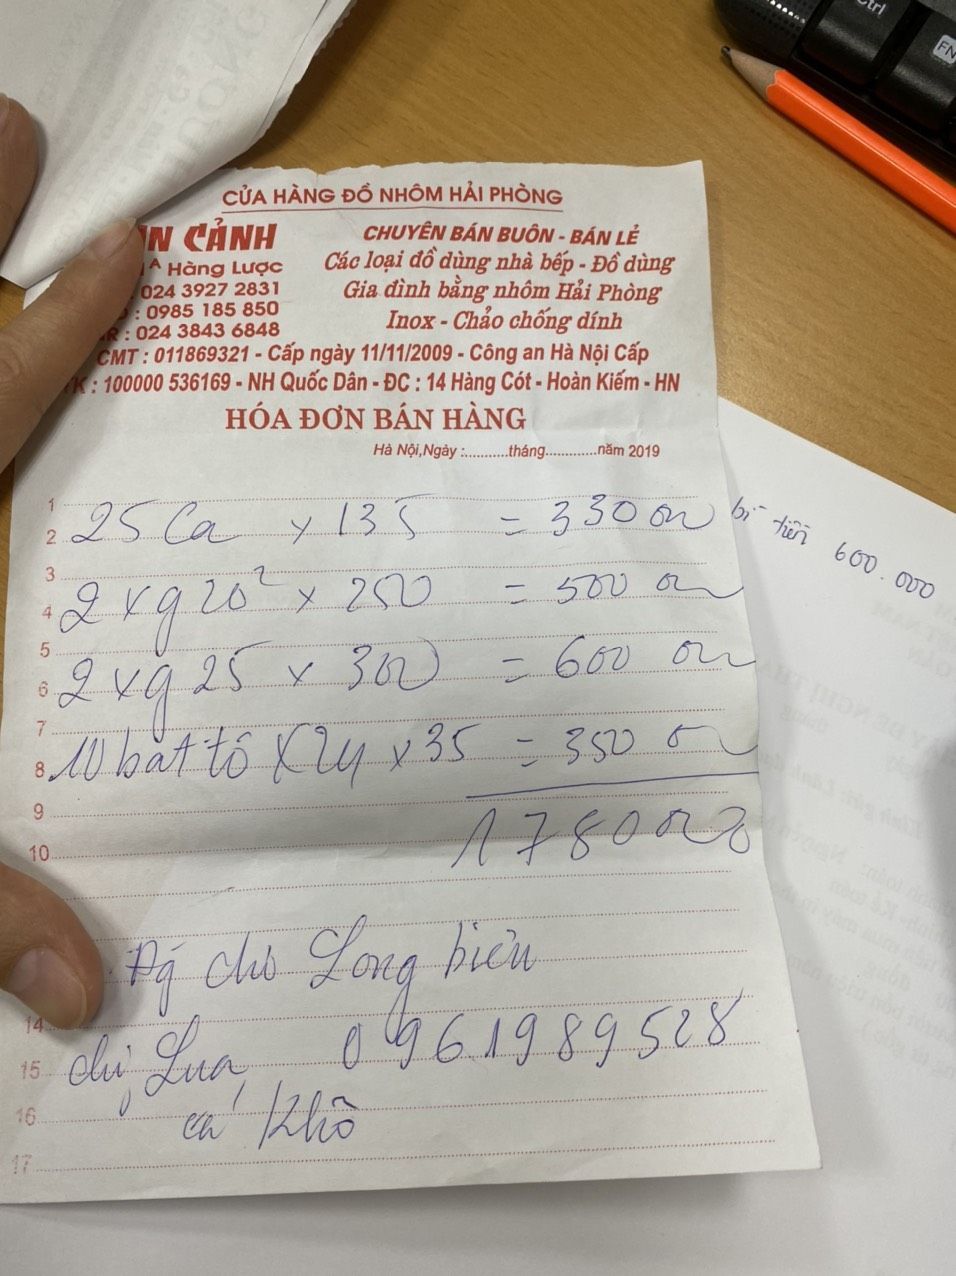 CỬA HÀNG ĐỒ NHÔM HẢI PHÒNG
CẢNH
Hàng Lược
024 3927 2831
: 0985 185 850
: 024 3843 6848
CHUYÊN BÁN BUÔN - BÁN LẺ
Các loại đồ dùng nhà bếp - Đồ dùng
Gia đình bằng nhôm Hải Phòng
Inox - Chảo chống dính
CMT : 011869321 - Cấp ngày 11/11/2009 - Công an Hà Nội Cấp
: 100000 536169 - NH Quốc Dân - ĐC : 14 Hàng Cót - Hoàn Kiếm - HN
HÓA ĐƠN BÁN HÀNG
Hà Nội,Ngày :..........tháng............năm 2019
1
2 25 Ca x 135 = 330 000
bì tiền 600.000
3
4 2 x g 20² x 250 = 500 000
5
6 2 x g 25 x 300 = 600 000
7
8 10 bat tô x 24 x 35 = 350 000
9
10 1780000
chi Long biên
14
15 chị Lua 0961989528
16 cá Khô
17
Ctrl
FN